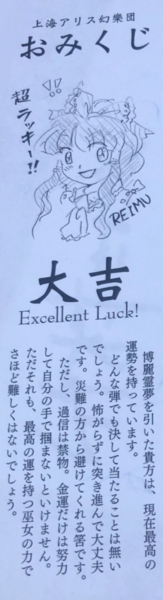 上海アリス幻樂団
おみくじ
超ラッキー!!
!!
REIMU
大吉
Excellent Luck!
博麗霊夢を引いた貴方は、現在最高の
運勢を持っています。
どんな弾でも決して当たることは無い
でしょう。怖がらずに突き進んで大丈夫
です。災難の方から避けてくれる筈です。
ただし、過信は禁物。金運だけは努力
して自分の手で掴まないといけません。
ただそれも、最高の運を持つ巫女の力で
さほど難しくはないでしょう。